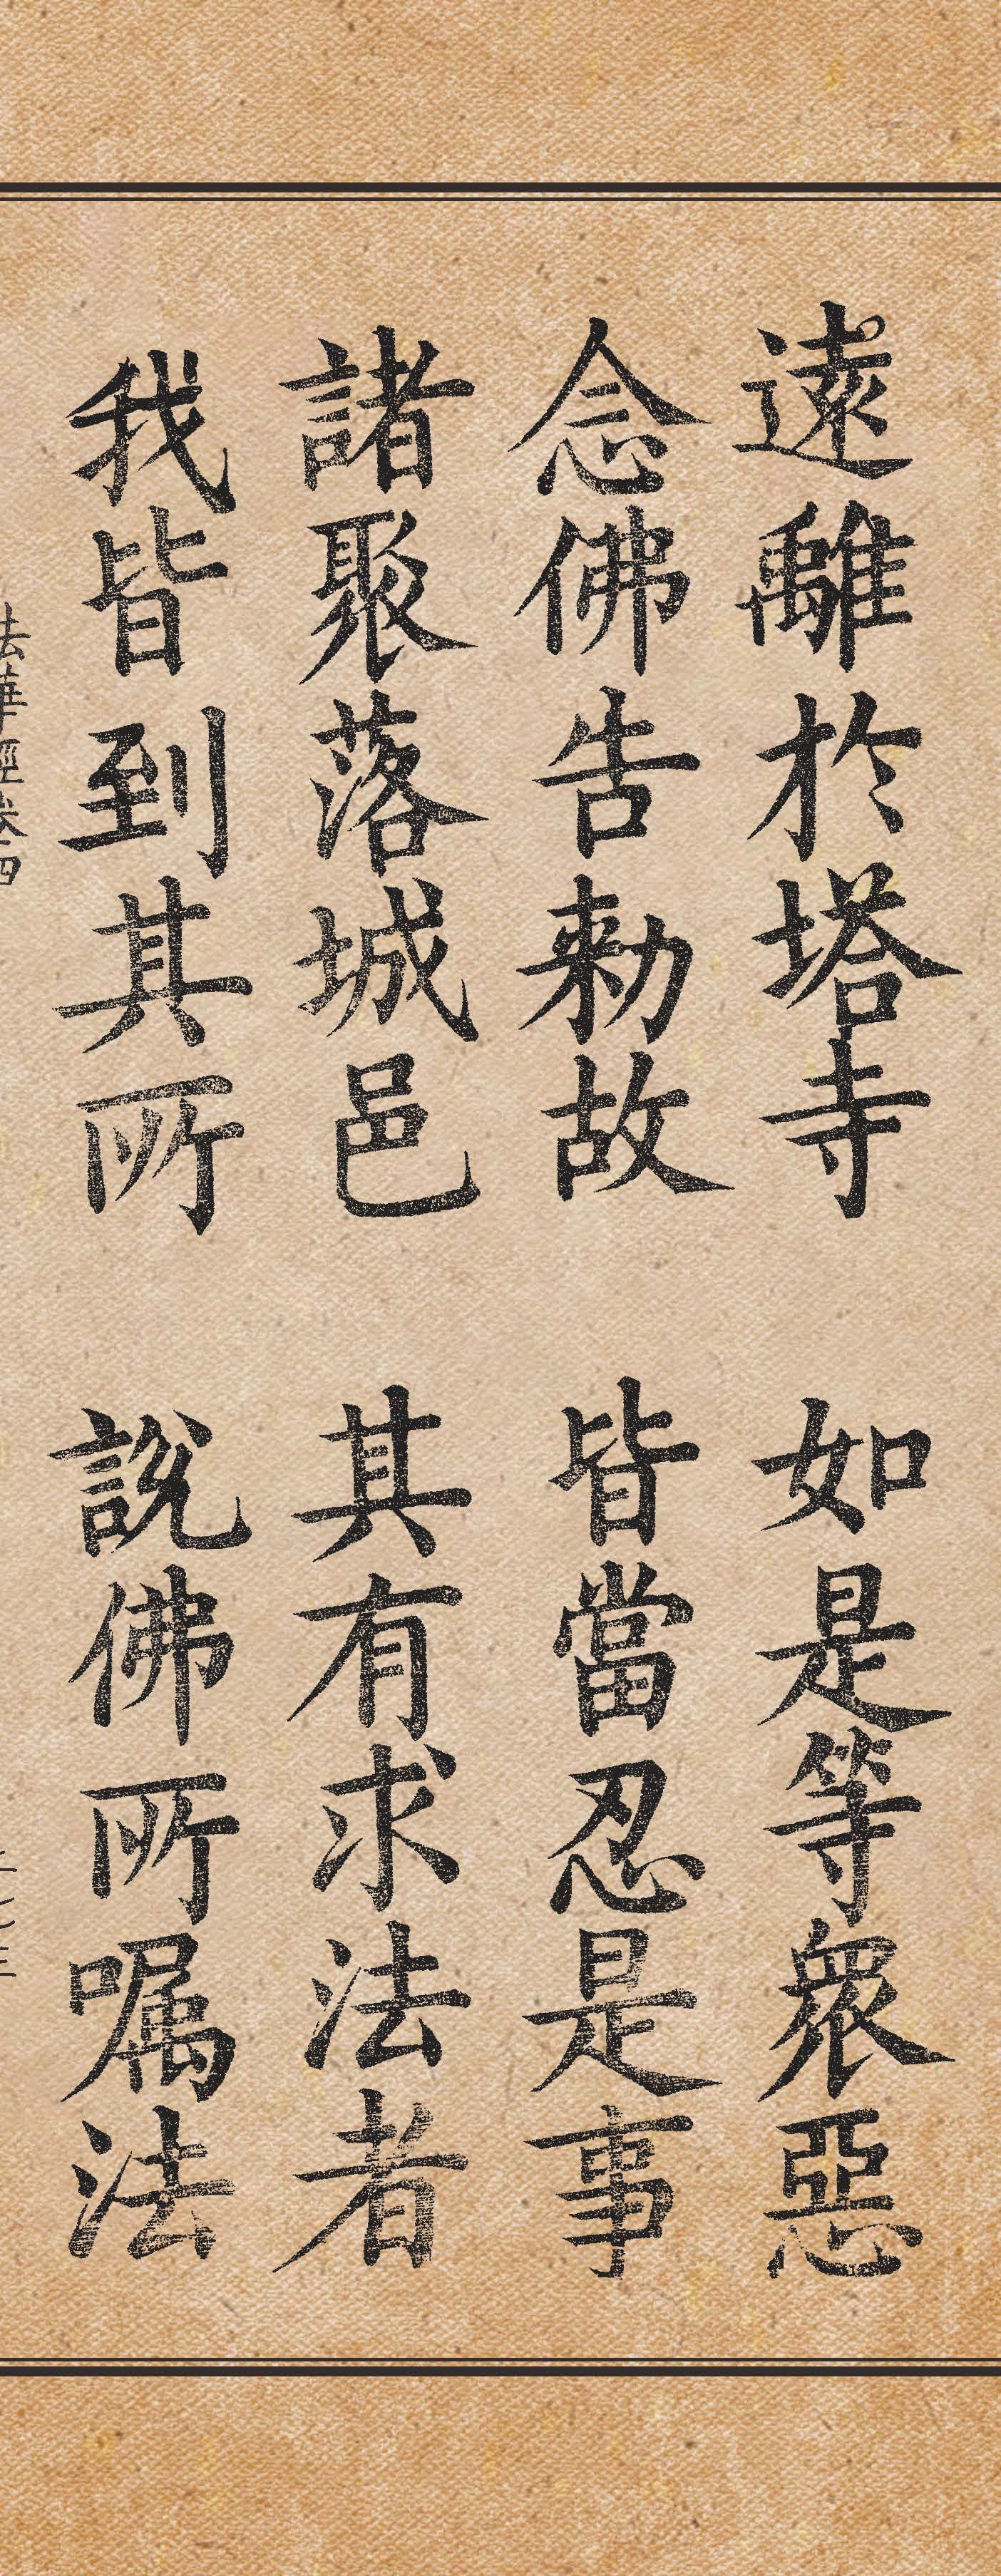 遠離於塔寺 如是等衆惡
念佛告勅故 皆當忍是事
諸聚落城邑 其有求法者
我皆到其所 說佛所嘱法
法華經卷四
二七三